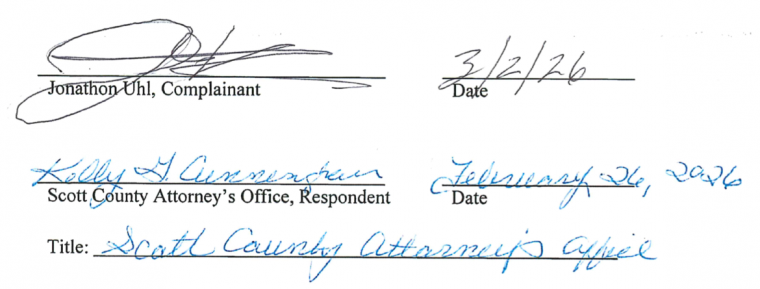 3/2/26
Jonathon Uhl, Complainant Date
Kelly G. Cunningham February 26, 2026
Scott County Attorney's Office, Respondent Date
Title: Scott County Attorney's Office